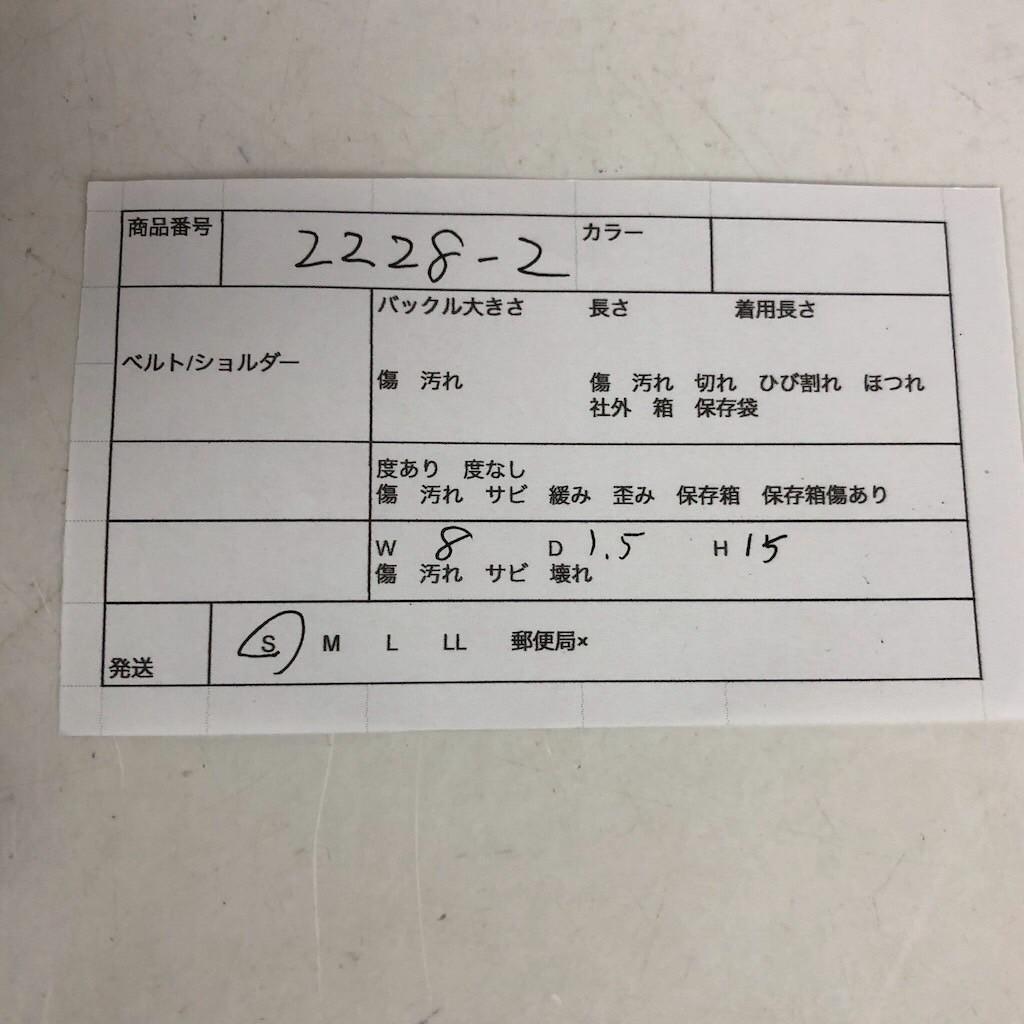 商品番号 2228-2 カラー
バックル大きさ 長さ 着用長さ
ベルト/ショルダー
傷 汚れ 傷 汚れ 切れ ひび割れ ほつれ
社外 箱 保存袋
度あり 度なし
傷 汚れ サビ 緩み 歪み 保存箱 保存箱傷あり
W 8 D 1.5 H 15
傷 汚れ サビ 壊れ
発送 S M L LL 郵便局×